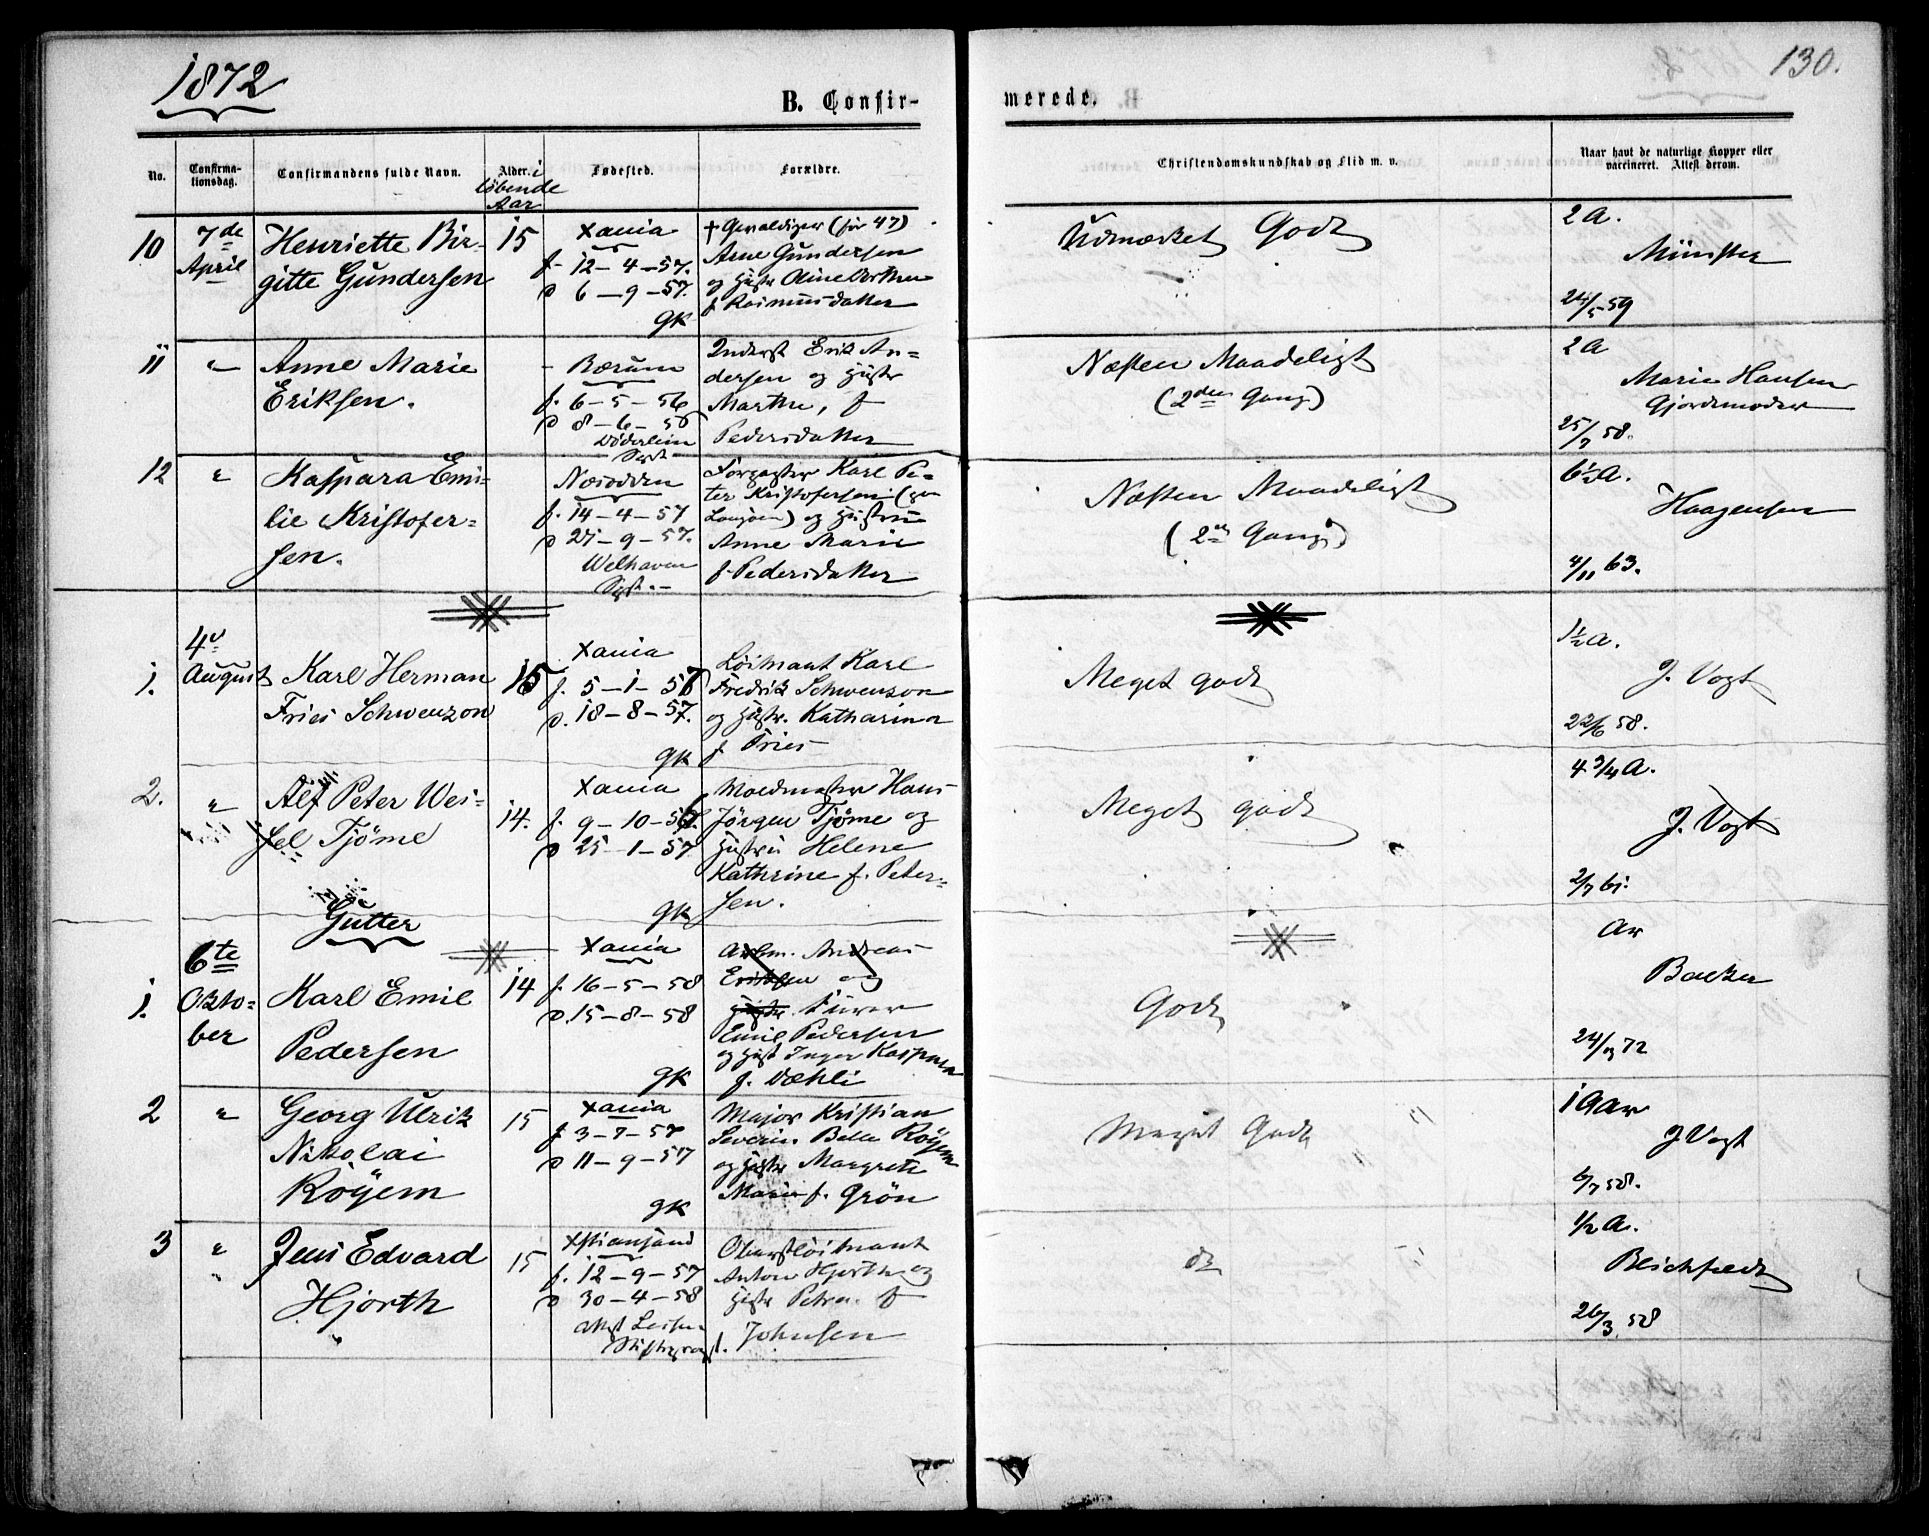 1872
130.
B. Confir-
merede.
No.
Confirma-
tionsdag.
Confirmandens fulde Navn.
Alder. i
løbende
Aar
Fødested.
Forældre.
Christendomskundskab og Flid m. v.
Naar havt de naturlige Kopper eller
vaccineret. Attest derom.
10
7de
April
Henriette Bir-
gitte Gundersen
15
Xania
f. 12-4-57.
D 6-9-57.
GK
+ Gevaldiger (før 47)
Arne Gundersen
og Hustr Oline Dorthea
f Rasmusdatter
Udmærket Godt
2 A.
Münster
24/5 59
11
"
Anne Marie
Eriksen.
-
Bærum
f. 6-5-56
D 8-6-56
Døderlein
Sgpr.
Inderst Erik An-
dersen og Hustr
Marthe, f
Pedersdatter
Næsten Maadeligt
(2den Gang)
2 A
Marie Hansen
Gjordemoder
25/7 58.
12
"
Kaspara Emi-
lie Kristofer-
sen.
Næsodden
f. 14-4-57
D 27-9-57.
Welhaven
Sgpr.-
Karl Pe-
ter Kristofersen (
) og Hustru
Anne Marie
f. Pedersdatter
Næsten Maadeligt
(2den Gang)
6½ A.
Haagensen
4/11 63.
1.
4de
August
Karl Herman
Fries Schwenzon
15
Xania
f. 5-1-57
D. 18-8-57.
GK
Løitnant Karl
Fredrik Schwenzon
og Hustr. Katharina
f Fries
Meget godt
1½ A.
J. Vogt
22/6 58.
2.
"
Alf Peter Wei-
sel Tjöme
14.
Xania
f. 9-10-56.
D 25-1-57
GK
Hans
Jörgen Tjöme og
Hustru Helene
Kathrine f. Peter-
sen.
Meget godt
4 3/4 A.
J. Vogt
2/7 61.
Gutter
1.
6te
Okto-
ber
Karl Emil
Pedersen
14
Xania
f. 16-5-58
D. 15-8-58
GK
Arbm. Andreas
Eriksen og
Hustr.
Emil Pedersen
og Hust Inger Kaspara
f. Dæhli
Godt
Ar
Backer
24/9 72
2
"
Georg Ulrik
Nikolai
Röyem
15
Xania
f 3-7-57
D 11-9-57
GK
Major Kristian
Severin Belle Röyem
og Hustr Margrete
Marie f. Grön
Meget Godt
1 Aar
J Vogt
6/7 58.
3
"
Jens Edvard
Hjorth
15
Xstiansand
f. 12-9-57
D 30-4-58
Attst
Stiftsprovst.
Oberstløitnant
Anton Hjorth og
Hustr Petra f
Johnsen
do
½ A.
Blichfeldt
26/3 58